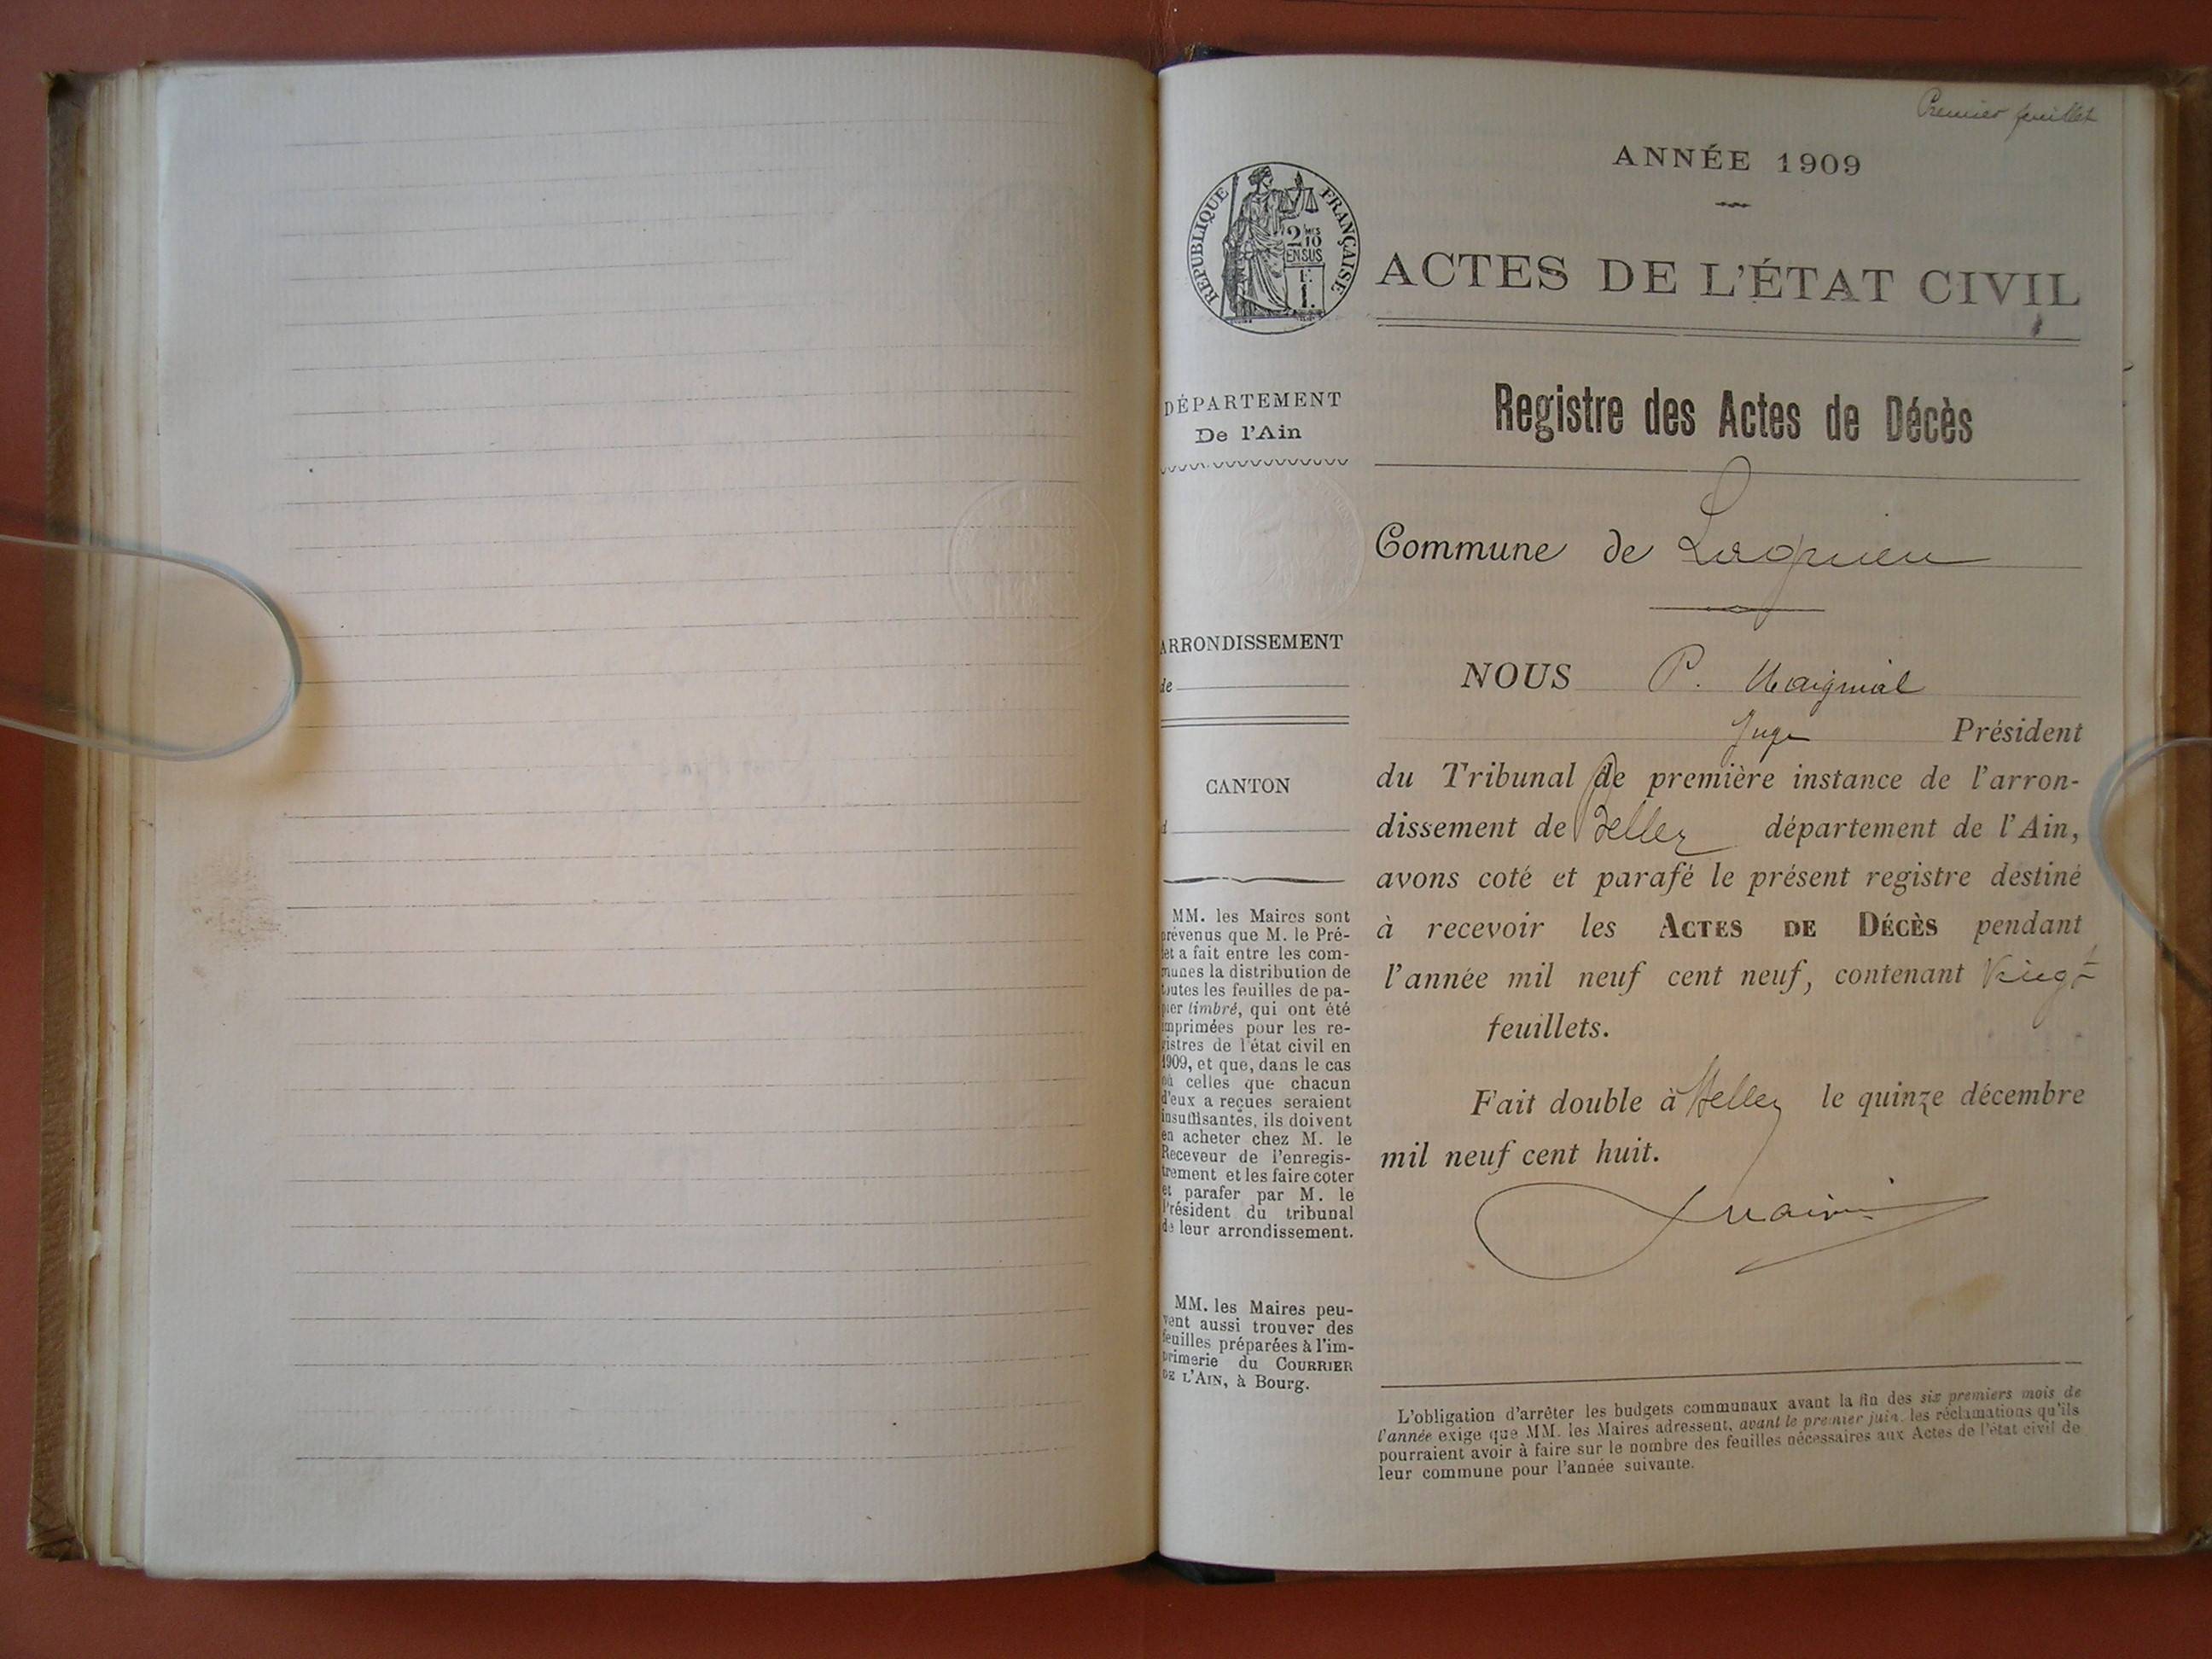 Premier feuillet
ANNÉE 1909
RÉPUBLIQUE FRANÇAISE
2/10 MES
EN SUS
1 F.
ACTES DE L'ÉTAT CIVIL
DÉPARTEMENT
De l'Ain
ARRONDISSEMENT
de
CANTON
d
MM. les Maires sont
prévenus que M. le Pré-
fet a fait entre les com-
munes la distribution de
toutes les feuilles de pa-
pier timbré, qui ont été
imprimées pour les re-
gistres de l'état civil en
1909, et que, dans le cas
où celles que chacun
d'eux a reçues seraient
insuffisantes, ils doivent
en acheter chez M. le
Receveur de l'enregis-
trement et les faire coter
et parafer par M. le
Président du tribunal
de leur arrondissement.
MM. les Maires peu-
vent aussi trouver des
feuilles préparées à l'im-
primerie du COURRIER
DE L'AIN, à Bourg.
Registre des Actes de Décès
Commune de Lagnieu
NOUS P. Maignial
Juge Président
du Tribunal de première instance de l'arron-
dissement de Belley département de l'Ain,
avons coté et parafé le présent registre destiné
à recevoir les ACTES DE DÉCÈS pendant
l'année mil neuf cent neuf, contenant Vingt
feuillets.
Fait double à Belley le quinze décembre
mil neuf cent huit.
L'obligation d'arrêter les budgets communaux avant la fin des six premiers mois de
l'année exige que MM. les Maires adressent, avant le premier juin, les réclamations qu'ils
pourraient avoir à faire sur le nombre des feuilles nécessaires aux Actes de l'état civil de
leur commune pour l'année suivante.